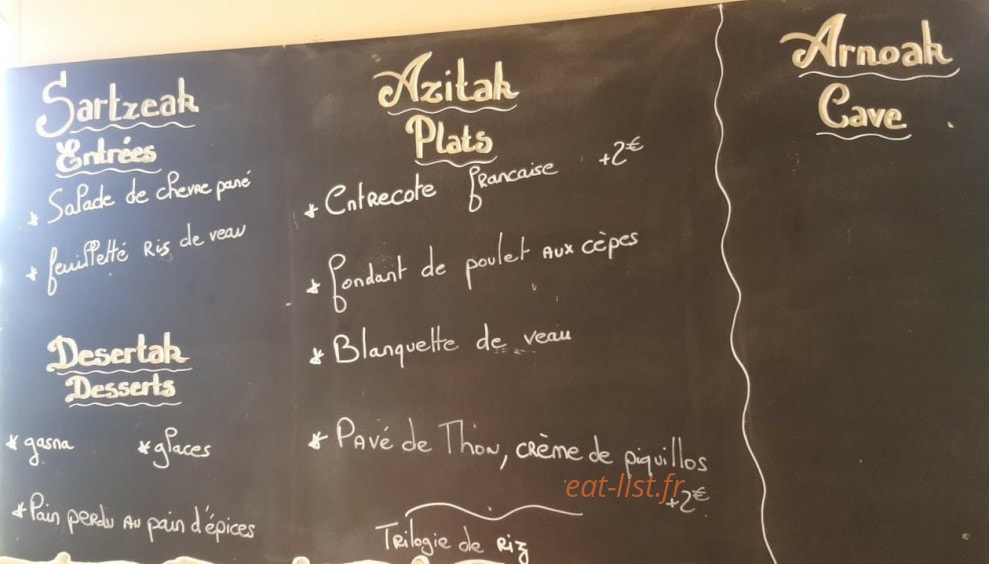 Sartzeak
Entrées
* Salade de chevre pané
* feuilletté Ris de veau
Desertak
Desserts
* gasna
* glaces
* Pain perdu au pain d'épices
Azitak
Plats
* Entrecote francaise +2€
* fondant de poulet aux cèpes
* Blanquette de veau
* Pavé de Thon, crème de piquillos
+2€
Trilogie de Riz
Arnoak
Cave
eat-list.fr